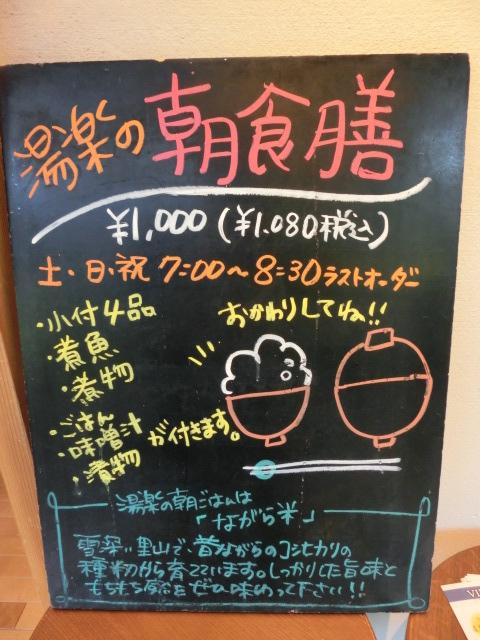 湯楽の朝食膳
¥1,000(¥1.080税込)
土・日・祝 7=00〜8=30ラストオーダー
・小付4品
おかわりしてね!!
・煮魚
・煮物
・ごはん
・味噌汁 が付きます。
・漬物
湯楽の朝ごはんは
「ながら米」
雪深い里山で、昔ながらのコシヒカリの
種籾から育てています。しっかりした旨味と
もちもち感をぜひ味わって下さい!!
VI